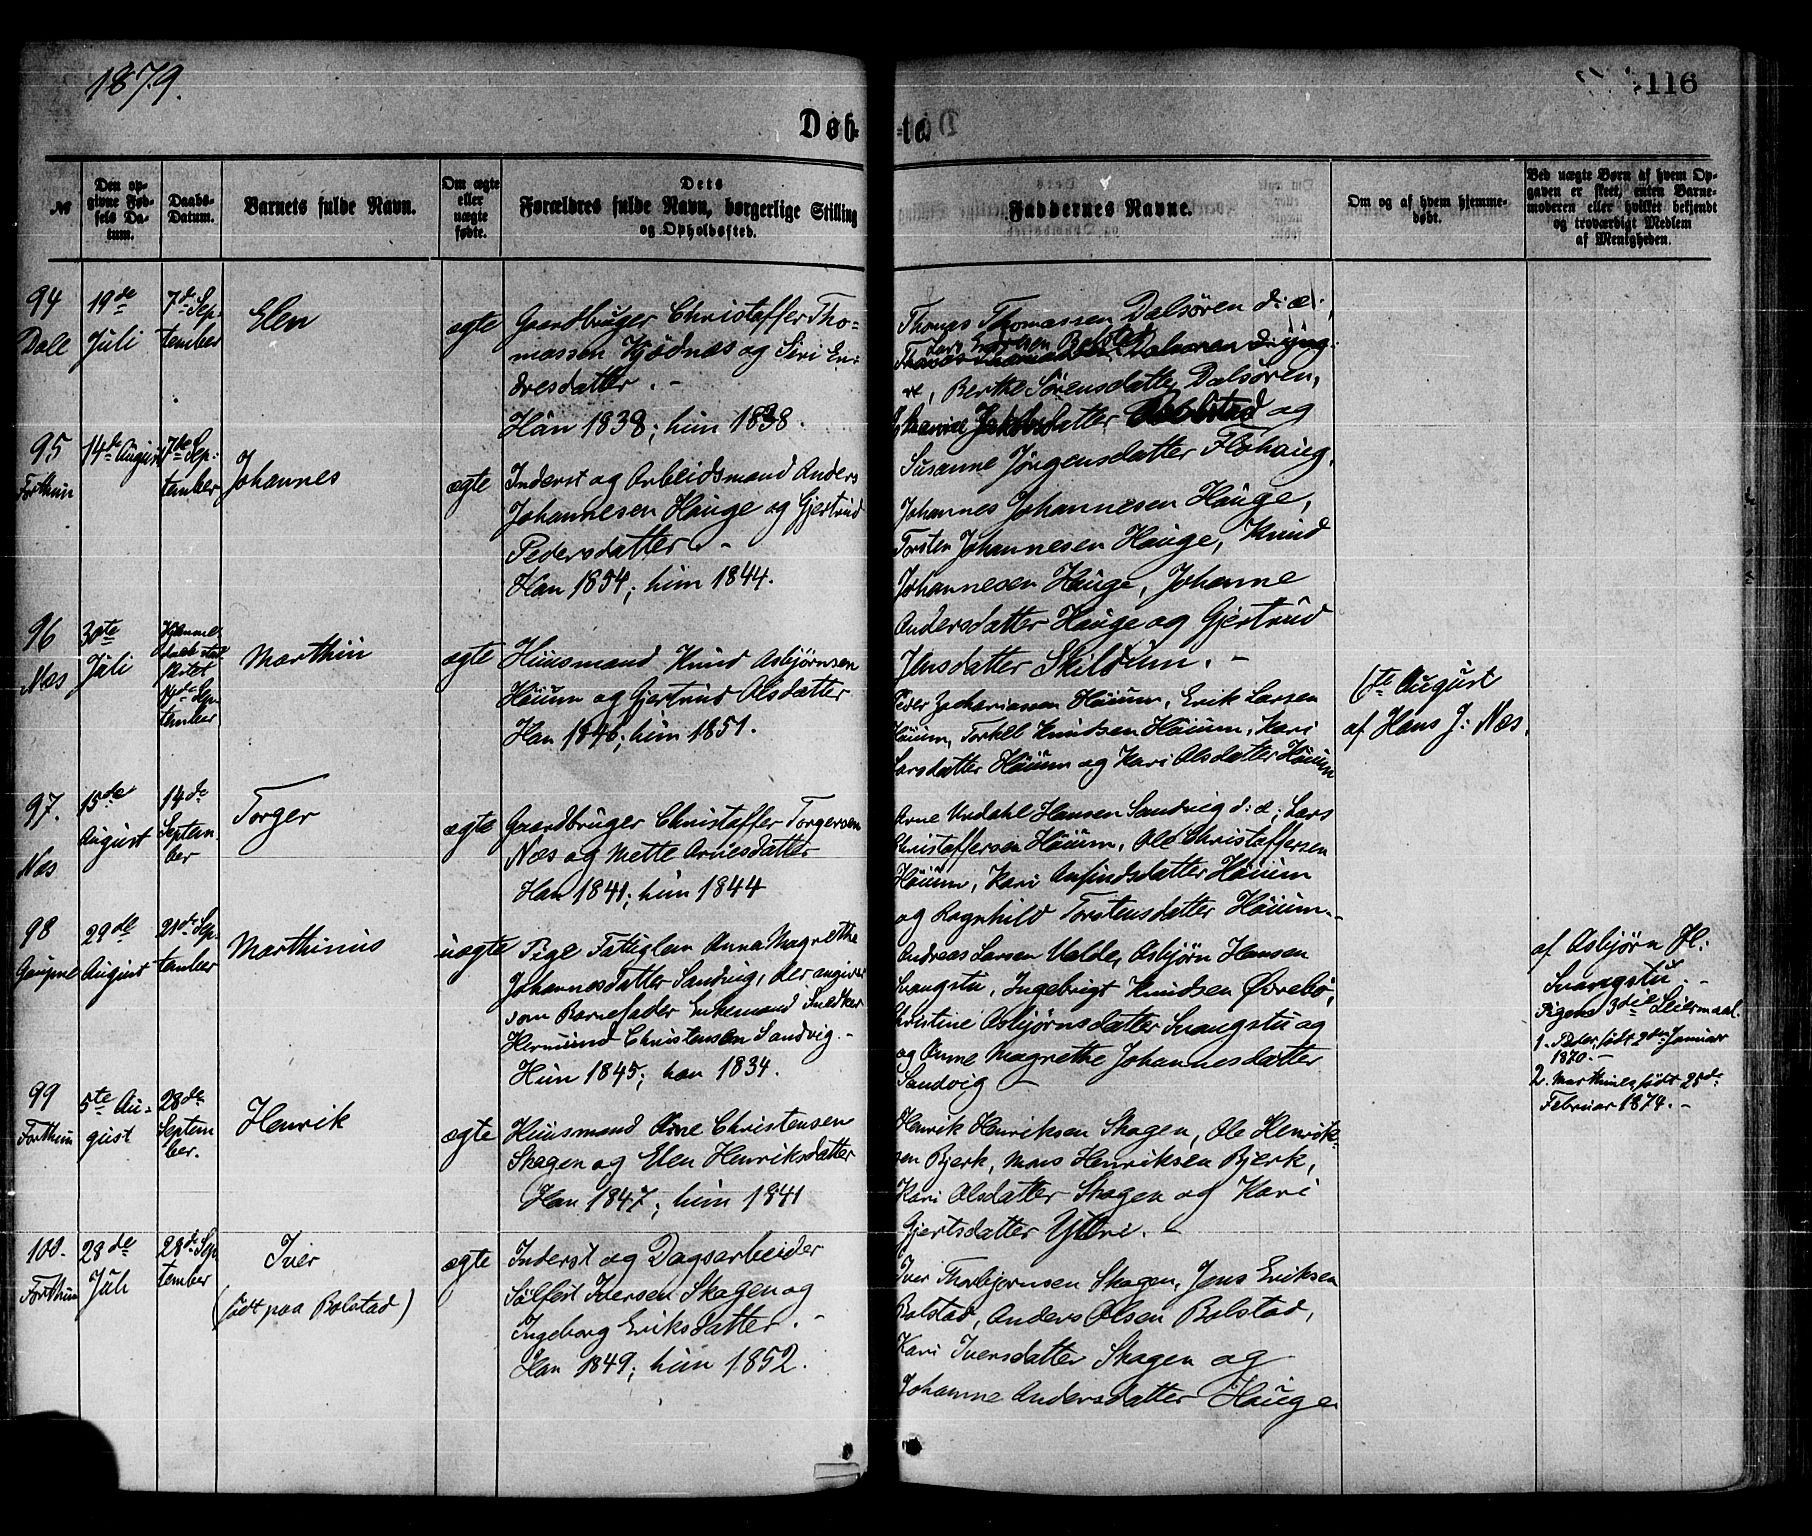 1879.
116
Døb-
te.
№
Den op-
givne Fød-
sels Da-
tum.
Daabs-
Datum.
Barnets fulde Navn.
Om ægte
eller
uægte
fødte.
Dets
Forældres fulde Navn, borgerlige Stilling
og Opholdssted.
Faddernes Navne.
Om og af hvem hjemme-
døbt.
Ved uægte Børn af hvem Op-
gaven er skeet, enten Barne-
moderen eller hvilket bekjendt
og troværdigt Medlem
af Menigheden.
94
Dale
19de
Juli
7de Sep-
tember
Elen
ægte
Gaardbruger Christaffer Tho-
massen Kjødnæs og Siri En-
dresdatter. -
Han 1838; hun 1838.
Thomas Thomassen Dalsøren d: æ:,
Lars Larsen Bolstad
Thomas Thomassen Dalsøren d: yng-
re, Berthe Sørensdatter Dalsøren,
Jakobsdatter Bolstad og
Susanne Jørgensdatter Flohaug.
95
Forthun
14de August
7de Sep-
tember
Johannes
ægte
Inderst og Arbeidsmand Anders
Johannesen Hauge og Gjertrud
Pedersdatter. -
Han 1854; hun 1844.
Johannes Johannesen Hauge,
Torsten Johannesen Hauge, Knud
Johannesen Hauge, Johanne
Andersdatter Hauge og Gjertrud
Jensdatter Skildum. -
96
Næs
30te
Juli
Hjemme-
daab stad-
fæstet
14de Sep-
tember
Marthin
ægte
Huusmand Knud Asbjørnsen
Høium og Gjertrud Olsdatter
Han 1846; hun 1851.
Peder Zachariassen Høium, Erik Larsen
Høium, Torkel Knudsen Høium, Kari
Larsdatter Høium og Kari Olsdatter Høium
6te August
af Hans J: Næs.
97.
Næs
15de
August
14de
Septem-
ber
Torger
ægte
Gaardbruger Christaffer Torgersen
Næs og Mette Arnesdatter
Han 1841; hun 1844
Arne Undahl Hansen Sandvig d: æ:, Lars
Christaffersen Høium, Ole Christaffersen
Høium, Kari Anfindsdatter Høium
og Ragnhild Torstensdatter Høium. -
98
Gaupne
29de
August
21de Sep-
tember
Marthinus
uægte
Pige Fattiglem Anna Magrethe
Johannesdatter Sandvig, der angiver
som Barnefader Enkemand Snedker
Hermund Christensen Sandvig. -
Hun 1845; han 1834.
Andreas Larsen Valde, Asbjørn Hansen
Svangstu, Ingebrigt Knudsen Øvrebø,
Christine Asbjørnsdatter Svangstu og
og Anne Magrethe Johannesdatter
Sandvig -
af Asbjørn H:
Svangstu. -
Pigens 3die Leiermaal.
1. Peder, født 9de Januar
1870. -
2. Marthines født 25de
Februar 1874. -
99
Forthun
5te Au-
gust
28de
Septem-
ber.
Henrik
ægte
Huusmand Arne Christensen
Skagen og Elen Henriksdatter
Han 1847; hun 1841
Henrik Henriksen Skagen, Ole Henrik-
sen Bjerk, Mons Henriksen Bjerk,
Kari Olsdatter Skagen og Kari
Gjertsdatter Ytri. -
100.
Forthun
28de
Juli
28de Sep-
tember
Iver
(født paa Bolstad)
ægte
Inderst og Dagsarbeider
Sølfest Iversen Skagen og
Ingeborg Eriksdatter. -
Han 1849; hun 1852.
Iver Thorbjørnsen Skagen, Jens Eriksen
Bolstad, Anders Olsen Bolstad,
Kari Iversdatter Skagen og
Johanne Andersdatter Hauge.